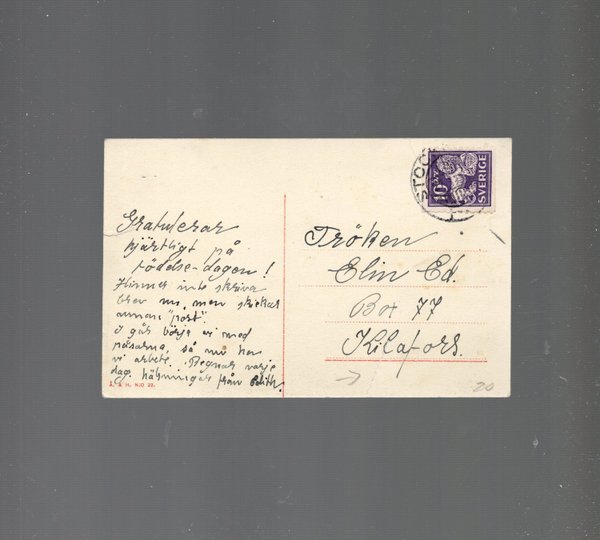 Gratulerar
hjärtligt på
födelse-dagen!
Hinner inte skriva
brev nu, men skickar
annan "post".
I går börja vi med
påsarna, så nu har
vi arbete. Regnar varje
dag. hälsningar från Edith.
Å. & H. N:O 22.
STOC
10
SVERIGE
Fröken
Elin Ed.
Box 77
Kilafors.
20